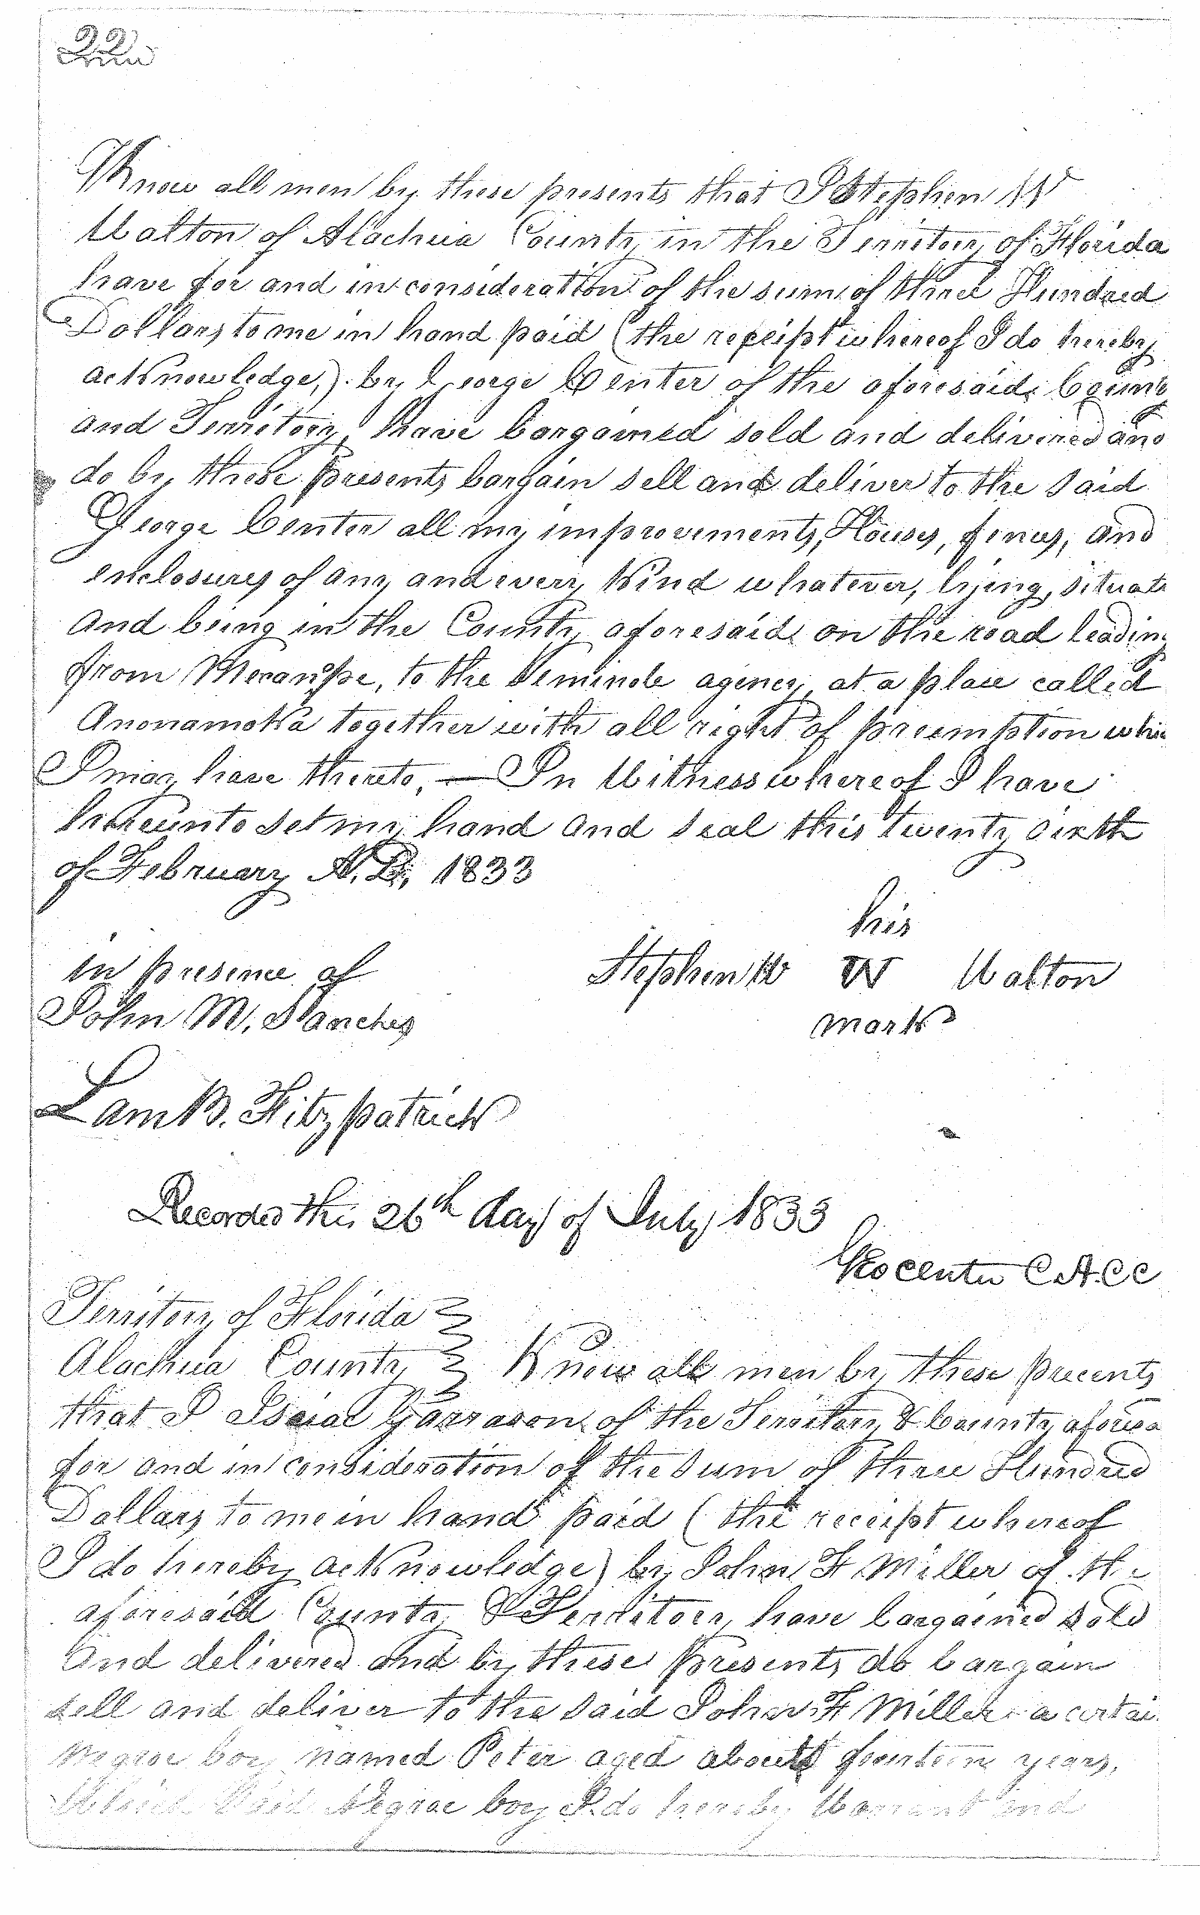 22
Know all men by these presents that I Stephen W
Walton of Alachua County in the Territory of Florida
have for and in consideration of the sum of three Hundred
Dollars to me in hand paid (the receipt whereof I do hereby
acknowledge,) by George Center of the aforesaid County
and Territory, have bargained sold and delivered and
do by these presents bargain sell and deliver to the said
George Center all my improvements, Houses, fences, and
enclosures of any and every kind whatever, lying, situate
and being in the County aforesaid on the road leading
from Mecanope, to the Seminole agency, at a place called
Anonamoka together with all right of preemption whi
I may have thereto, — In Witness whereof I have
hereunto set my hand and seal this twenty sixth
of February A.D. 1833
his
in presence of Stephen W W Walton
John M. Sanchez mark
Lam B. Fitzpatrick
Recorded this 26th day of July 1833
Geo Center C.A.C.C
Territory of Florida
Alachua County Know all men by these precents
that I Garrason of the Territory & County aforesa
for and in consideration of the sum of three Hundred
Dollars to me in hand paid (the receipt whereof
I do hereby acknowledge) by John F Miller of the
aforesaid County & Territory, have bargained sold
and delivered and by these presents do bargain
sell and deliver to the said John F Miller a certai
Negroe boy named Peter aged about fourteen years,
Which Said Negroe boy I do hereby Warrant and